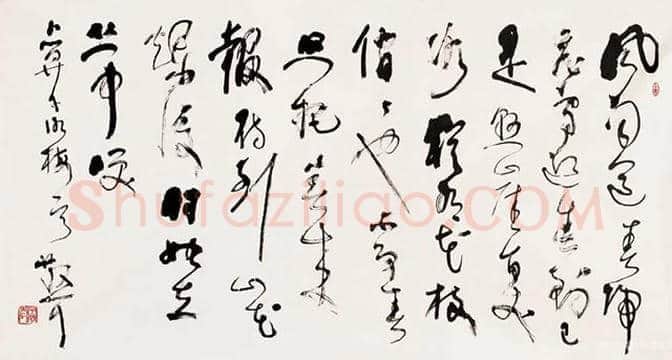 風雨送春归
飛雪迎春到已
是懸崖百丈
冰猶有花枝
俏〻也不争春
只把春来
報待到山花
爛漫时她在
丛中笑
卜算子咏梅
Shufaziliao.COM